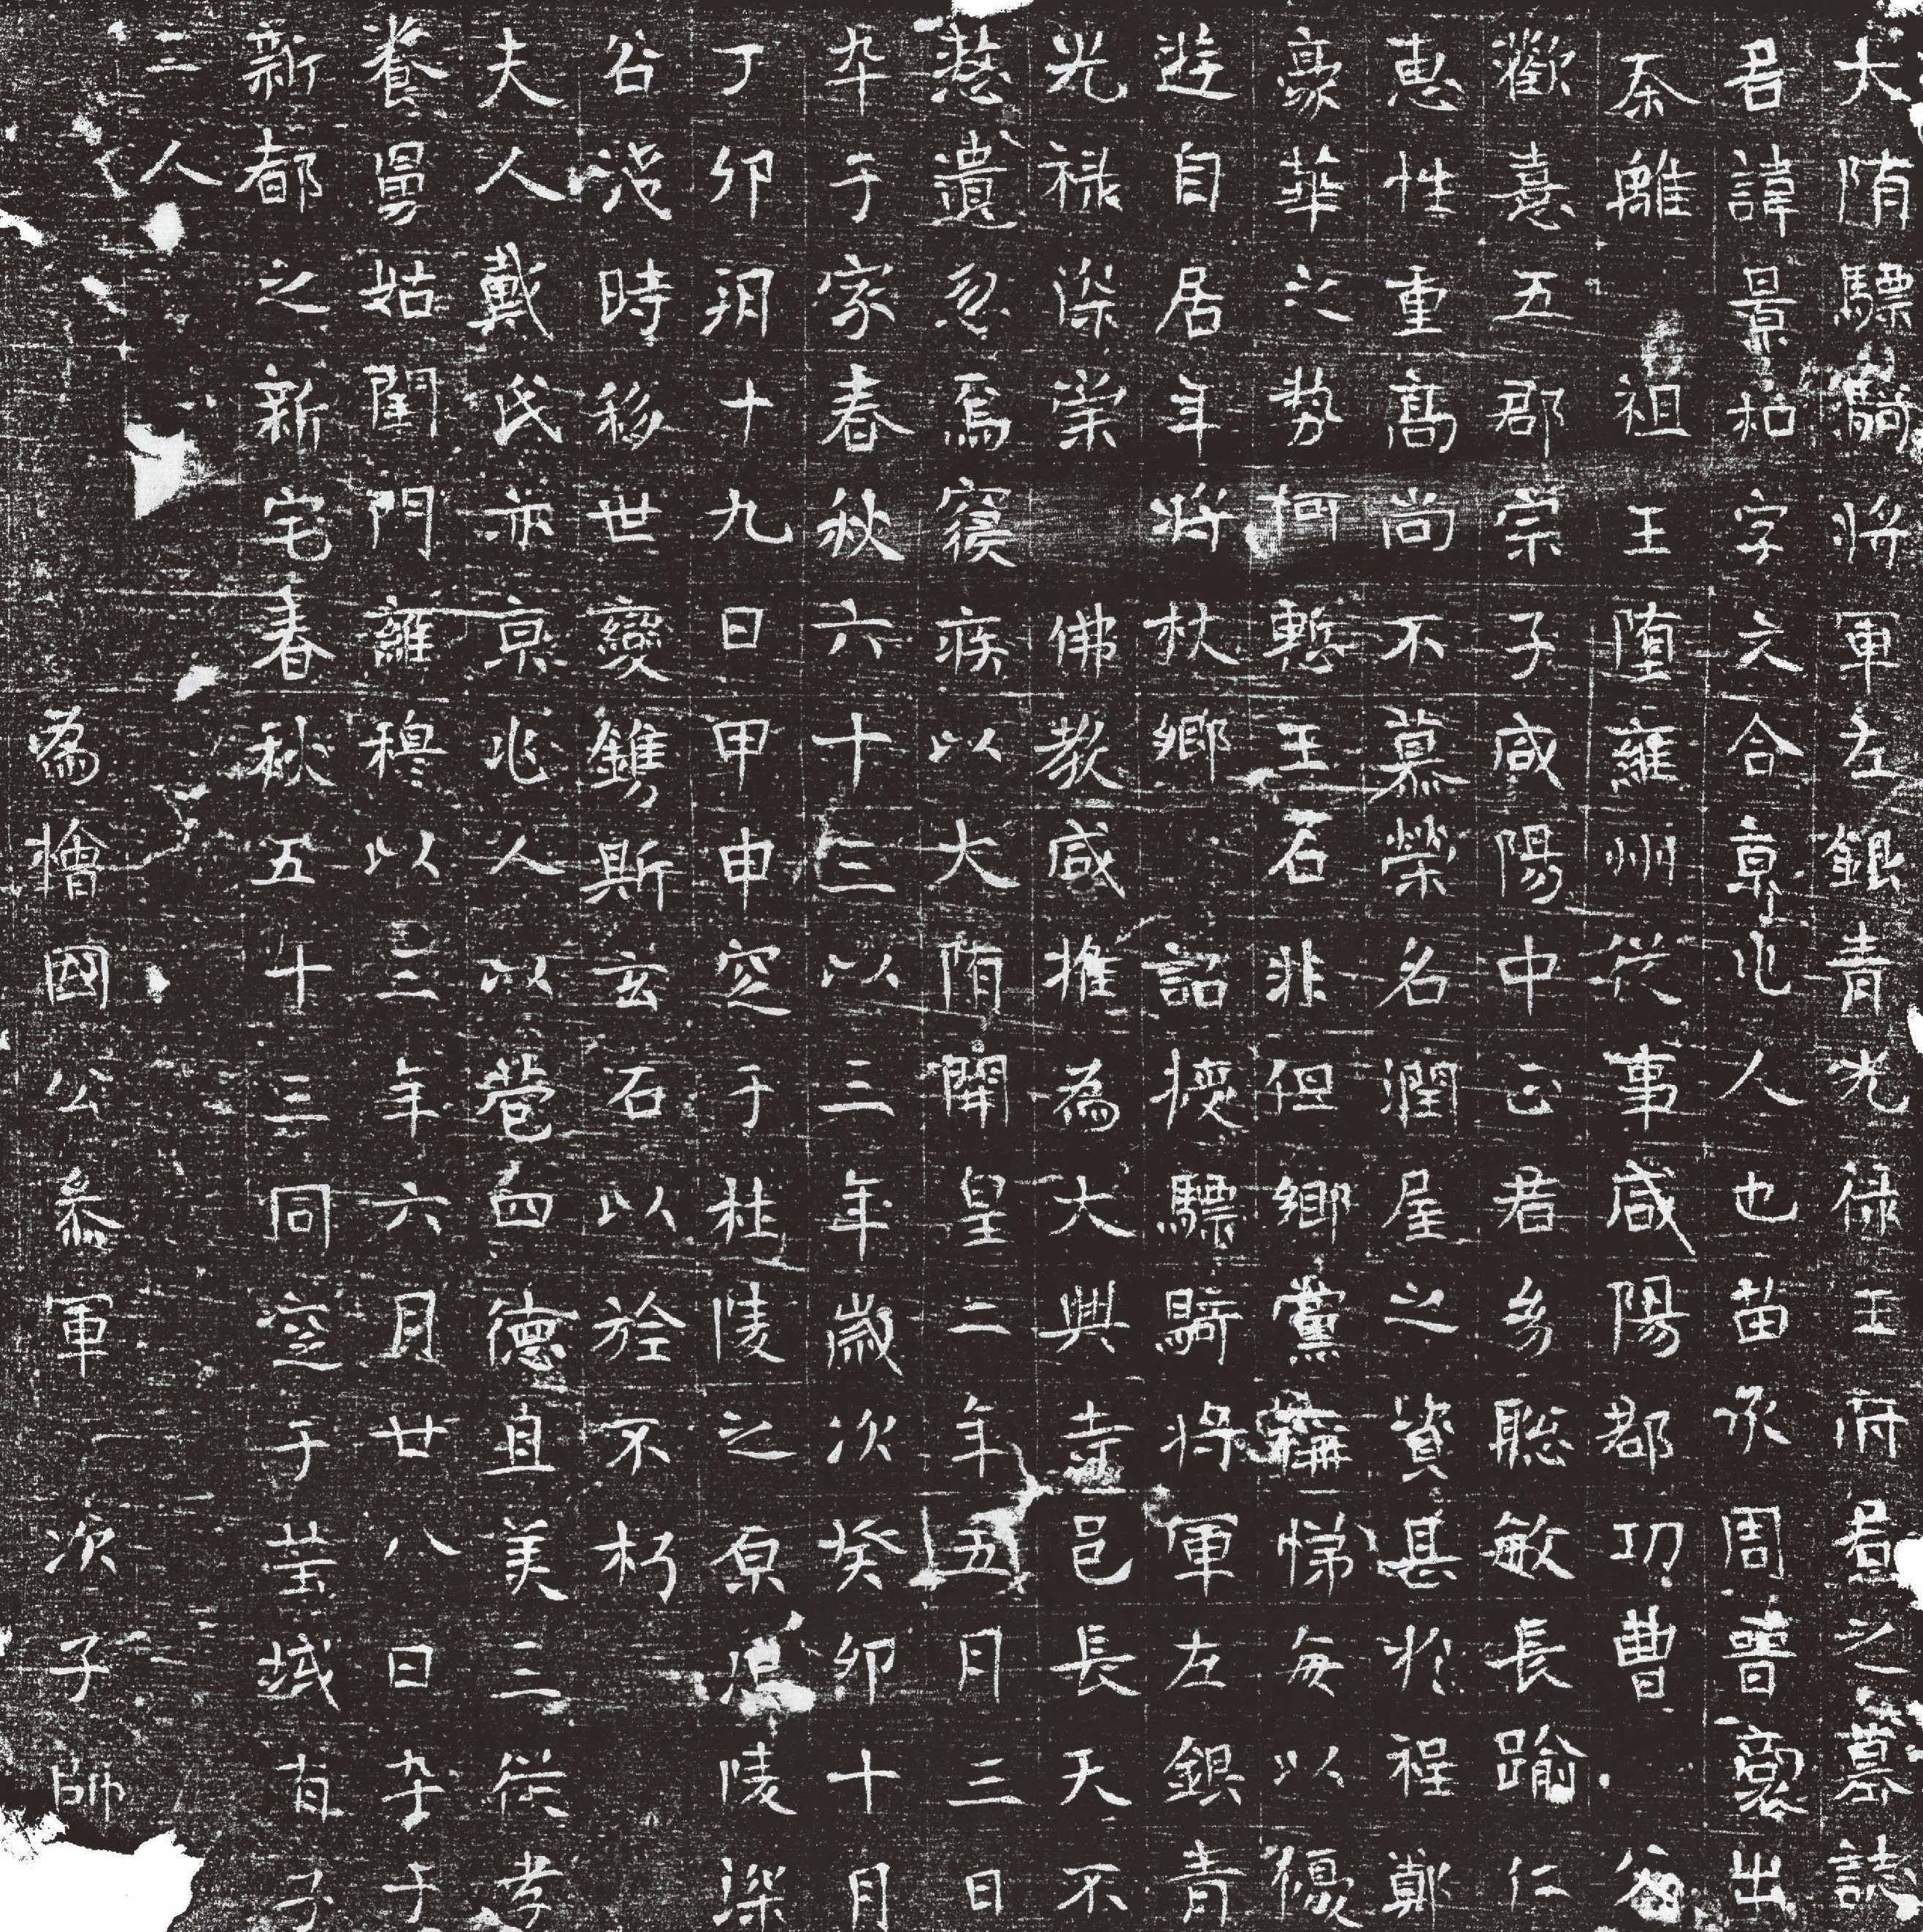 大隋驃騎將軍左銀青光祿王府君之墓誌
君諱景和字元合京兆人也苗承周晉裔出
秦離祖王隨雍州從事咸陽郡功曹父
歡憙五郡崇子咸陽中正君幼聰敏長踰仁
惠性重高尚不慕榮名潤屋之資甚於程鄭
豪華之勢何慙王石非但鄉黨稱悌每以優
遊自居年將杖鄉詔授驃騎將軍左銀青
光祿深崇佛教咸推為大興寺邑長天不
慭遺忽焉寢疾以大隋開皇二年五月三日
卒于家春秋六十三以三年歲次癸卯十月
丁卯朔十九日甲申窆于杜陵之原恐陵深
谷淺時移世變鐫斯玄石以旌不朽
夫人戴氏亦京兆人以苞四德且美三從孝
養舅姑閨門雍穆以三年六月廿八日卒于
新都之新宅春秋五十三同窆于塋域有子
三人
為檜國公參軍 次子帥